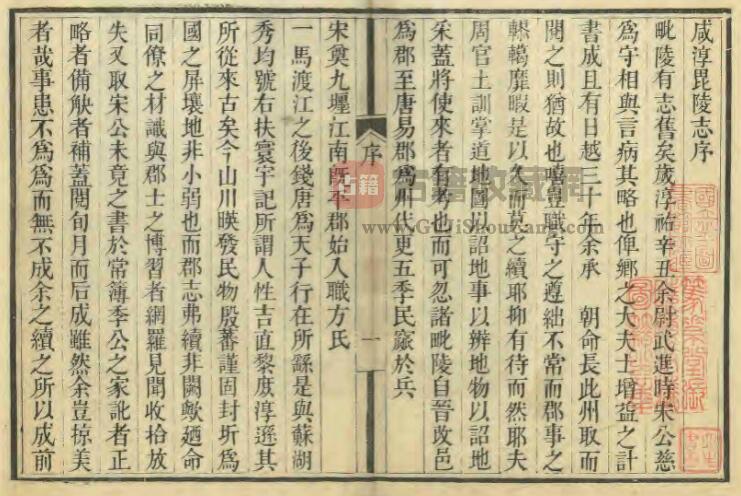 咸淳毘陵志序
毗陵有志舊矣歲淳祐辛丑余尉武進時宋公慈
爲守相與言病其略也俾鄉之大夫士增益之計
書成且有日越三十年余承 朝命長此州取而
閱之則猶故也嘻豈職守之遵絀不常而郡事之
轇轕靡暇是以久而莫之續耶抑有待而然耶夫
周官土訓掌道地圖以詔地事以辨地物以詔地
求蓋將使來者有考也而可忽諸毗陵自晉改邑
爲郡至唐易郡爲州代更五季民窾於兵
宋奠九壥江南旣平郡始入職方氏
一馬渡江之後錢唐爲天子行在所繇是與蘇湖
秀均號右扶寰宇記所謂人性吉直黎庻淳遜其
所從來古矣今山川暎發民物殷蕃謹固封圻爲
國之屏壤地非小弱也而郡志弗續非闕歟廼命
同僚之材識與郡士之博習者網羅見聞收拾放
失又取宋公未竟之書於常簿季公之家訛者正
略者備觖者補蓋閱旬月而后成雖然余豈掠美
者哉事患不爲爲而無不成余之續之所以成前
序
一
古籍
古籍收藏網
www.GuJiShouCang.com